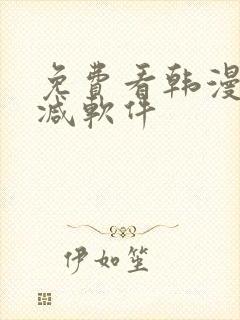 免費看韩漫
减軟件
伊如笙